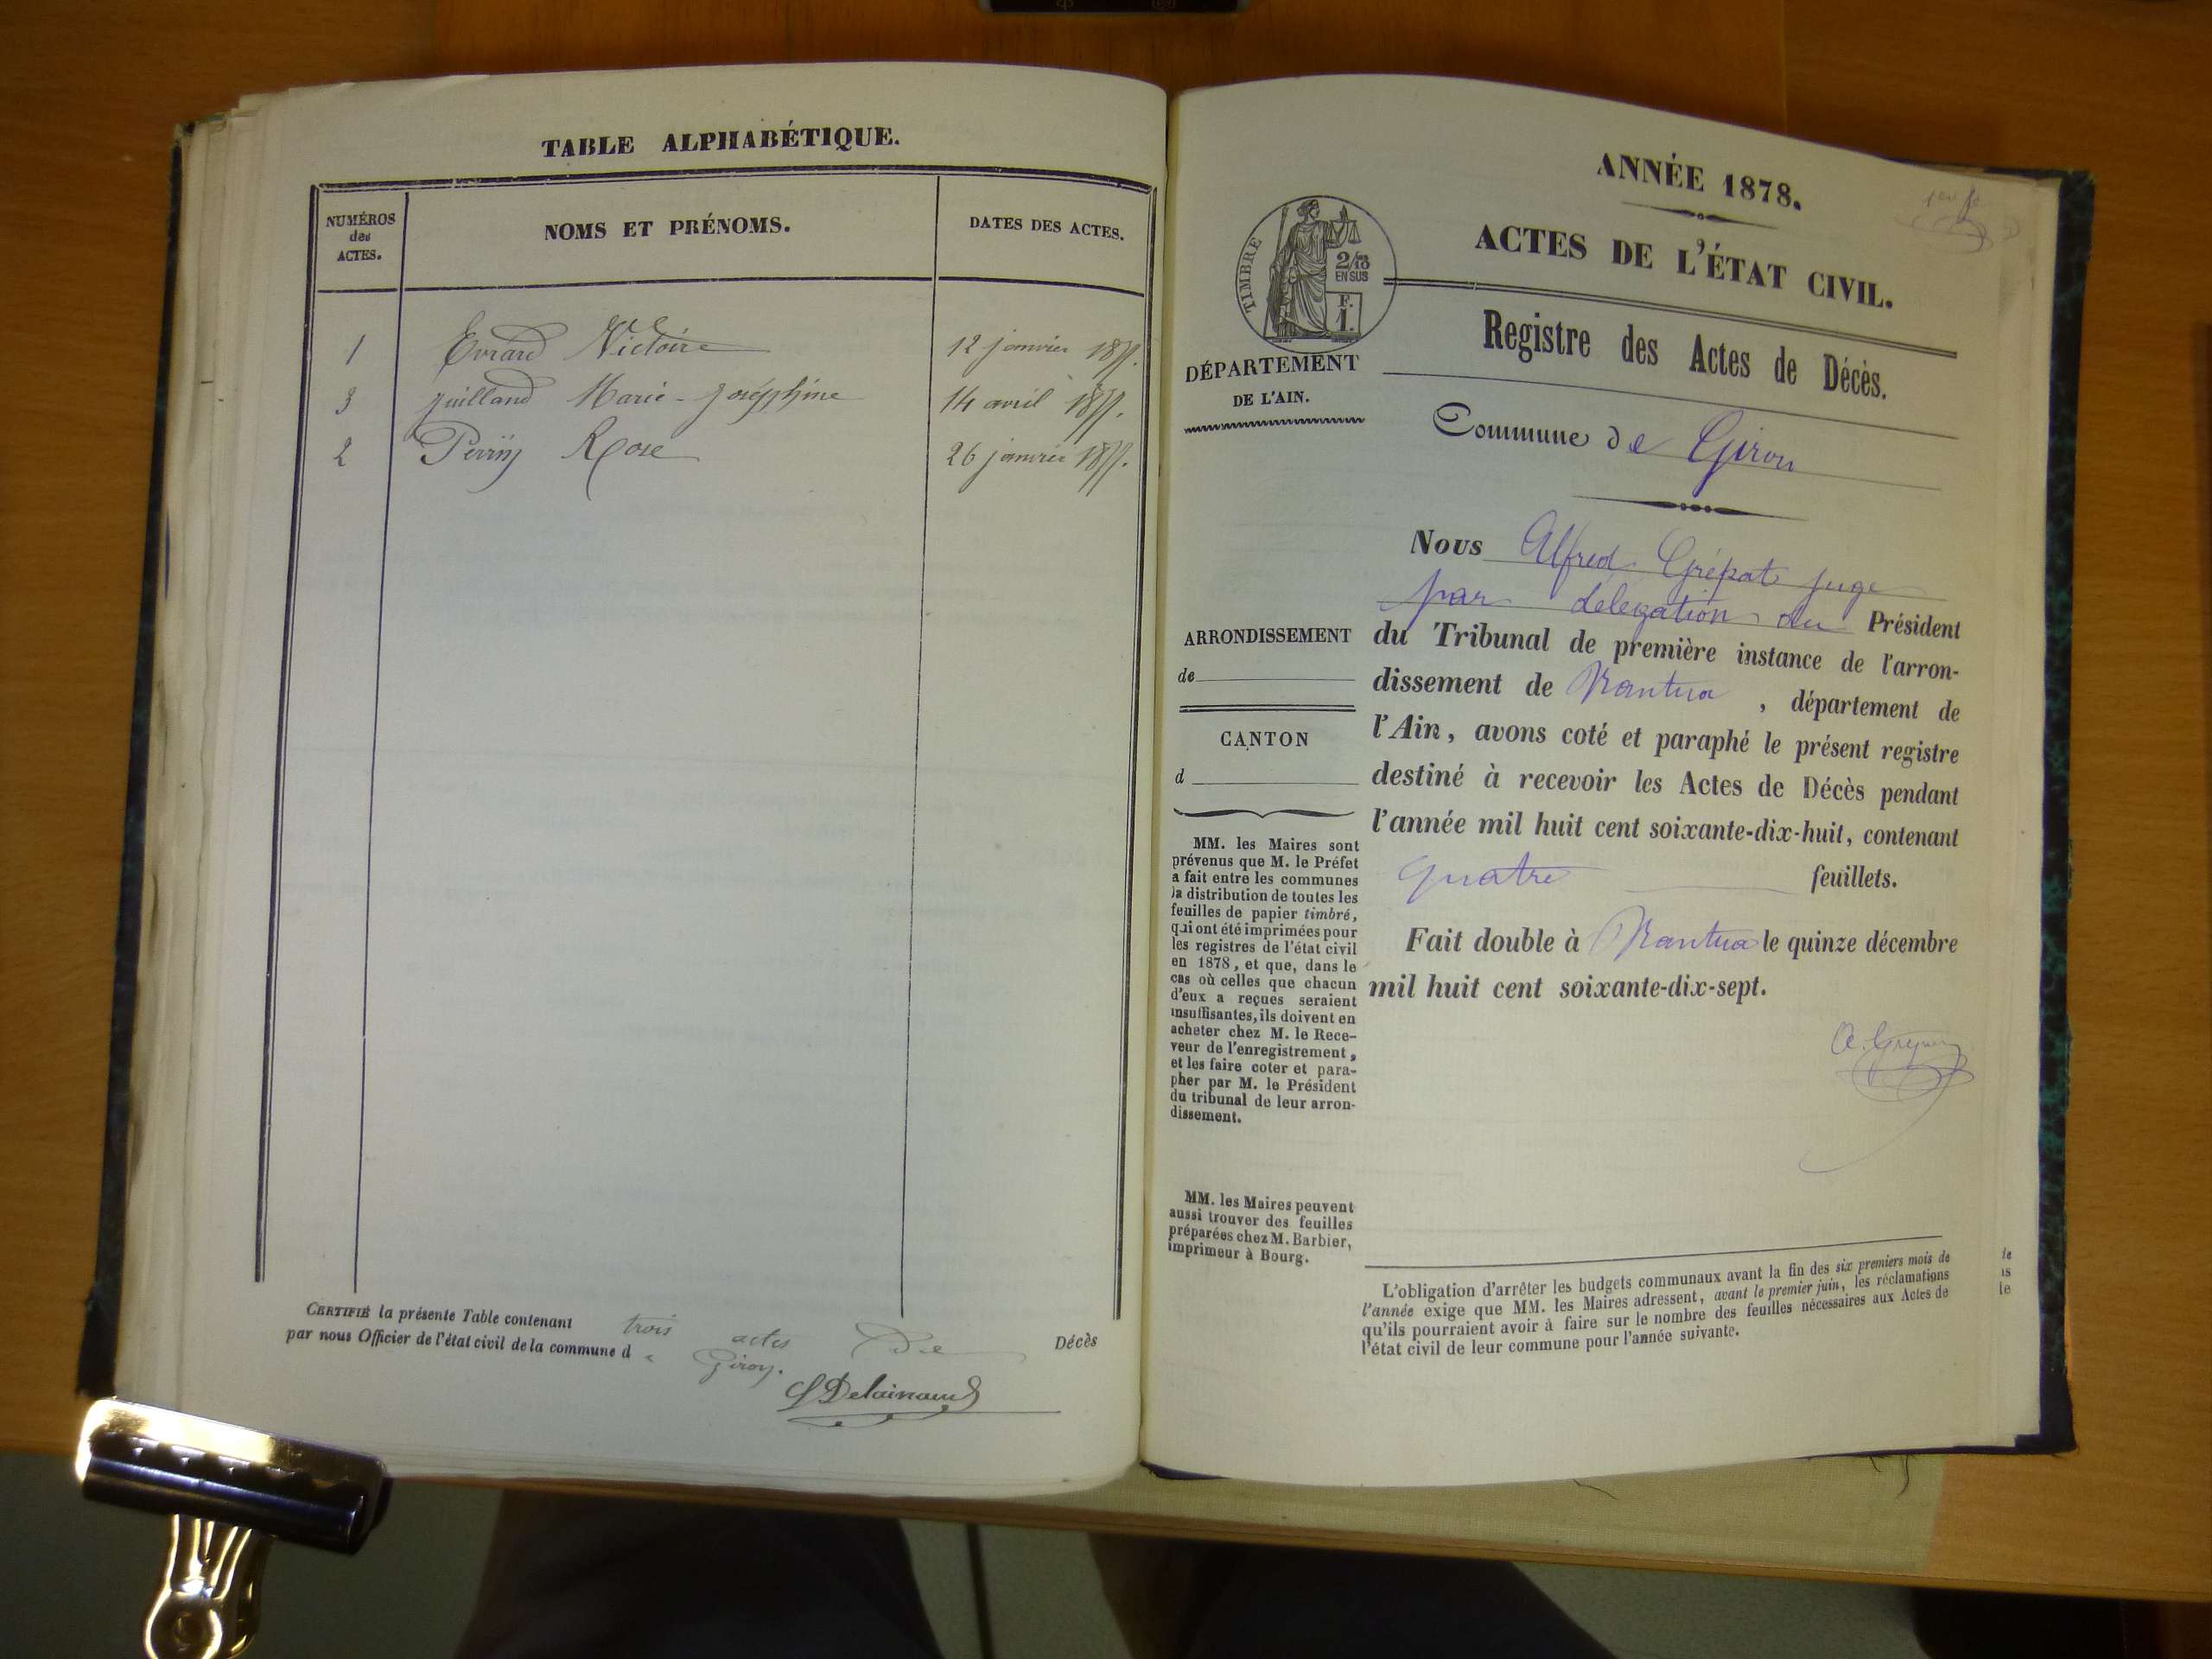 TABLE ALPHABÉTIQUE.
NUMÉROS des ACTES.
NOMS ET PRÉNOMS.
DATES DES ACTES.
1 Evrard Victoire 12 janvier 1877.
3 Juilland Marie-Joséphine 14 avril 1877.
2 Perrin Rose 26 janvier 1877.
CERTIFIÉ la présente Table contenant trois actes De Décès
par nous Officier de l'état civil de la commune d e Giron.
Delainaud
ANNÉE 1878.
ACTES DE L'ÉTAT CIVIL.
Registre des Actes de Décès.
Commune de Giron
TIMBRE
2/10
EN SUS
F.
1.
DÉPARTEMENT
DE L'AIN.
ARRONDISSEMENT
de
CANTON
d
MM. les Maires sont
prévenus que M. le Préfet
a fait entre les communes
la distribution de toutes les
feuilles de papier timbré,
qui ont été imprimées pour
les registres de l'état civil
en 1878, et que, dans le
cas où celles que chacun
d'eux a reçues seraient
insuffisantes, ils doivent en
acheter chez M. le Rece-
veur de l'enregistrement,
et les faire coter et para-
pher par M. le Président
du tribunal de leur arron-
dissement.
MM. les Maires peuvent
aussi trouver des feuilles
préparées chez M. Barbier,
imprimeur à Bourg.
Nous Alfred juge
par délégation du Président
du Tribunal de première instance de l'arron-
dissement de Nantua, département de
l'Ain, avons coté et paraphé le présent registre
destiné à recevoir les Actes de Décès pendant
l'année mil huit cent soixante-dix-huit, contenant
quatre feuillets.
Fait double à Nantua le quinze décembre
mil huit cent soixante-dix-sept.
L'obligation d'arrêter les budgets communaux avant la fin des six premiers mois de
l'année exige que MM. les Maires adressent, avant le premier juin, les réclamations
qu'ils pourraient avoir à faire sur le nombre des feuilles nécessaires aux Actes de
l'état civil de leur commune pour l'année suivante.